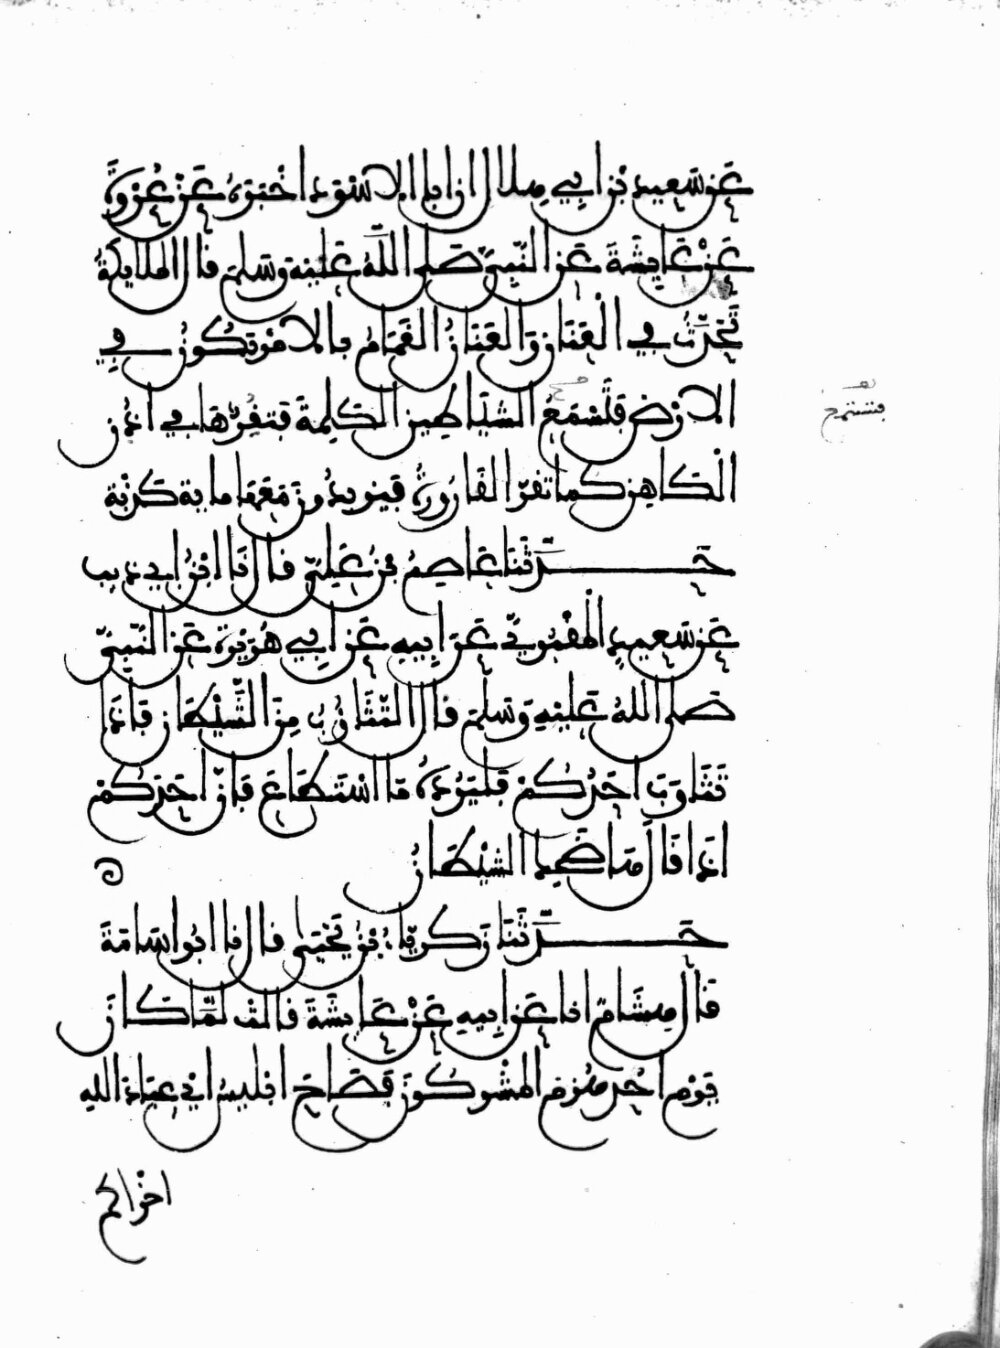 عَن سَعِيدِ بْنِ أَبِي هِلَالٍ أن أبا الاسْوَدِ اخْبَرَهُ عَنْ عُرْوَةَ
عَنْ عَايِشَةَ عَنِ النَّبِيِّ صَلى اللَّهُ عَلَيْهِ وَسَلم قال الملايكةُ
تَحَدَّثُ فِي الْعَنَانِ وَالعَنَانُ الغَمَامُ بالامْرِ تكُونُ فِي
الارْضِ فَتَسْمَعُ الشيَاطِينُ الكَلِمَةَ فتقُرُّهَا فِي أُذُنِ
فتستمع
الْكَاهِنِ كما تقرّ القَارُورَةُ فيزيدُونَ مَعَهَا ماية كَذْبة
حَدَّثَنَا عَاصِمُ بْنُ عَلِيٍّ قال نا ابْنُ ابي ذيب
عَن سَعِيدٍ المَقْبُرِيِّ عَنَ ابِيهِ عَنَ ابِي هُرَيْرَةَ عَنِ النَّبِيِّ
صَلى اللهُ عَلَيْهِ وَسَلم قال التثَاؤبُ مِنَ الشَّيْطَانِ فَإذَا
تَثَاوَبَ احَدُكُمْ فَلْيَرُدَّهُ مَا اسْتَطَاعَ فَإنَّ احَدَكُمْ
اذَا قَالَ هَا ضَحِكَ الشيْطَانُ
حَدَّثَنَا زَكَرِيَّاءُ بْنُ يَحْيَى قال نا ابُو اسَامَةَ
قَال هِشَامٌ انا عَنَ ابِيهِ عَنْ عَايِشَةَ قالت لَمَّا كَانَ
يَوْم احُدٍ هُزِمَ المُشْرِكُونَ فَصَاحَ ابْلِيسُ اي عِبَادَ اللهِ
اخراكم